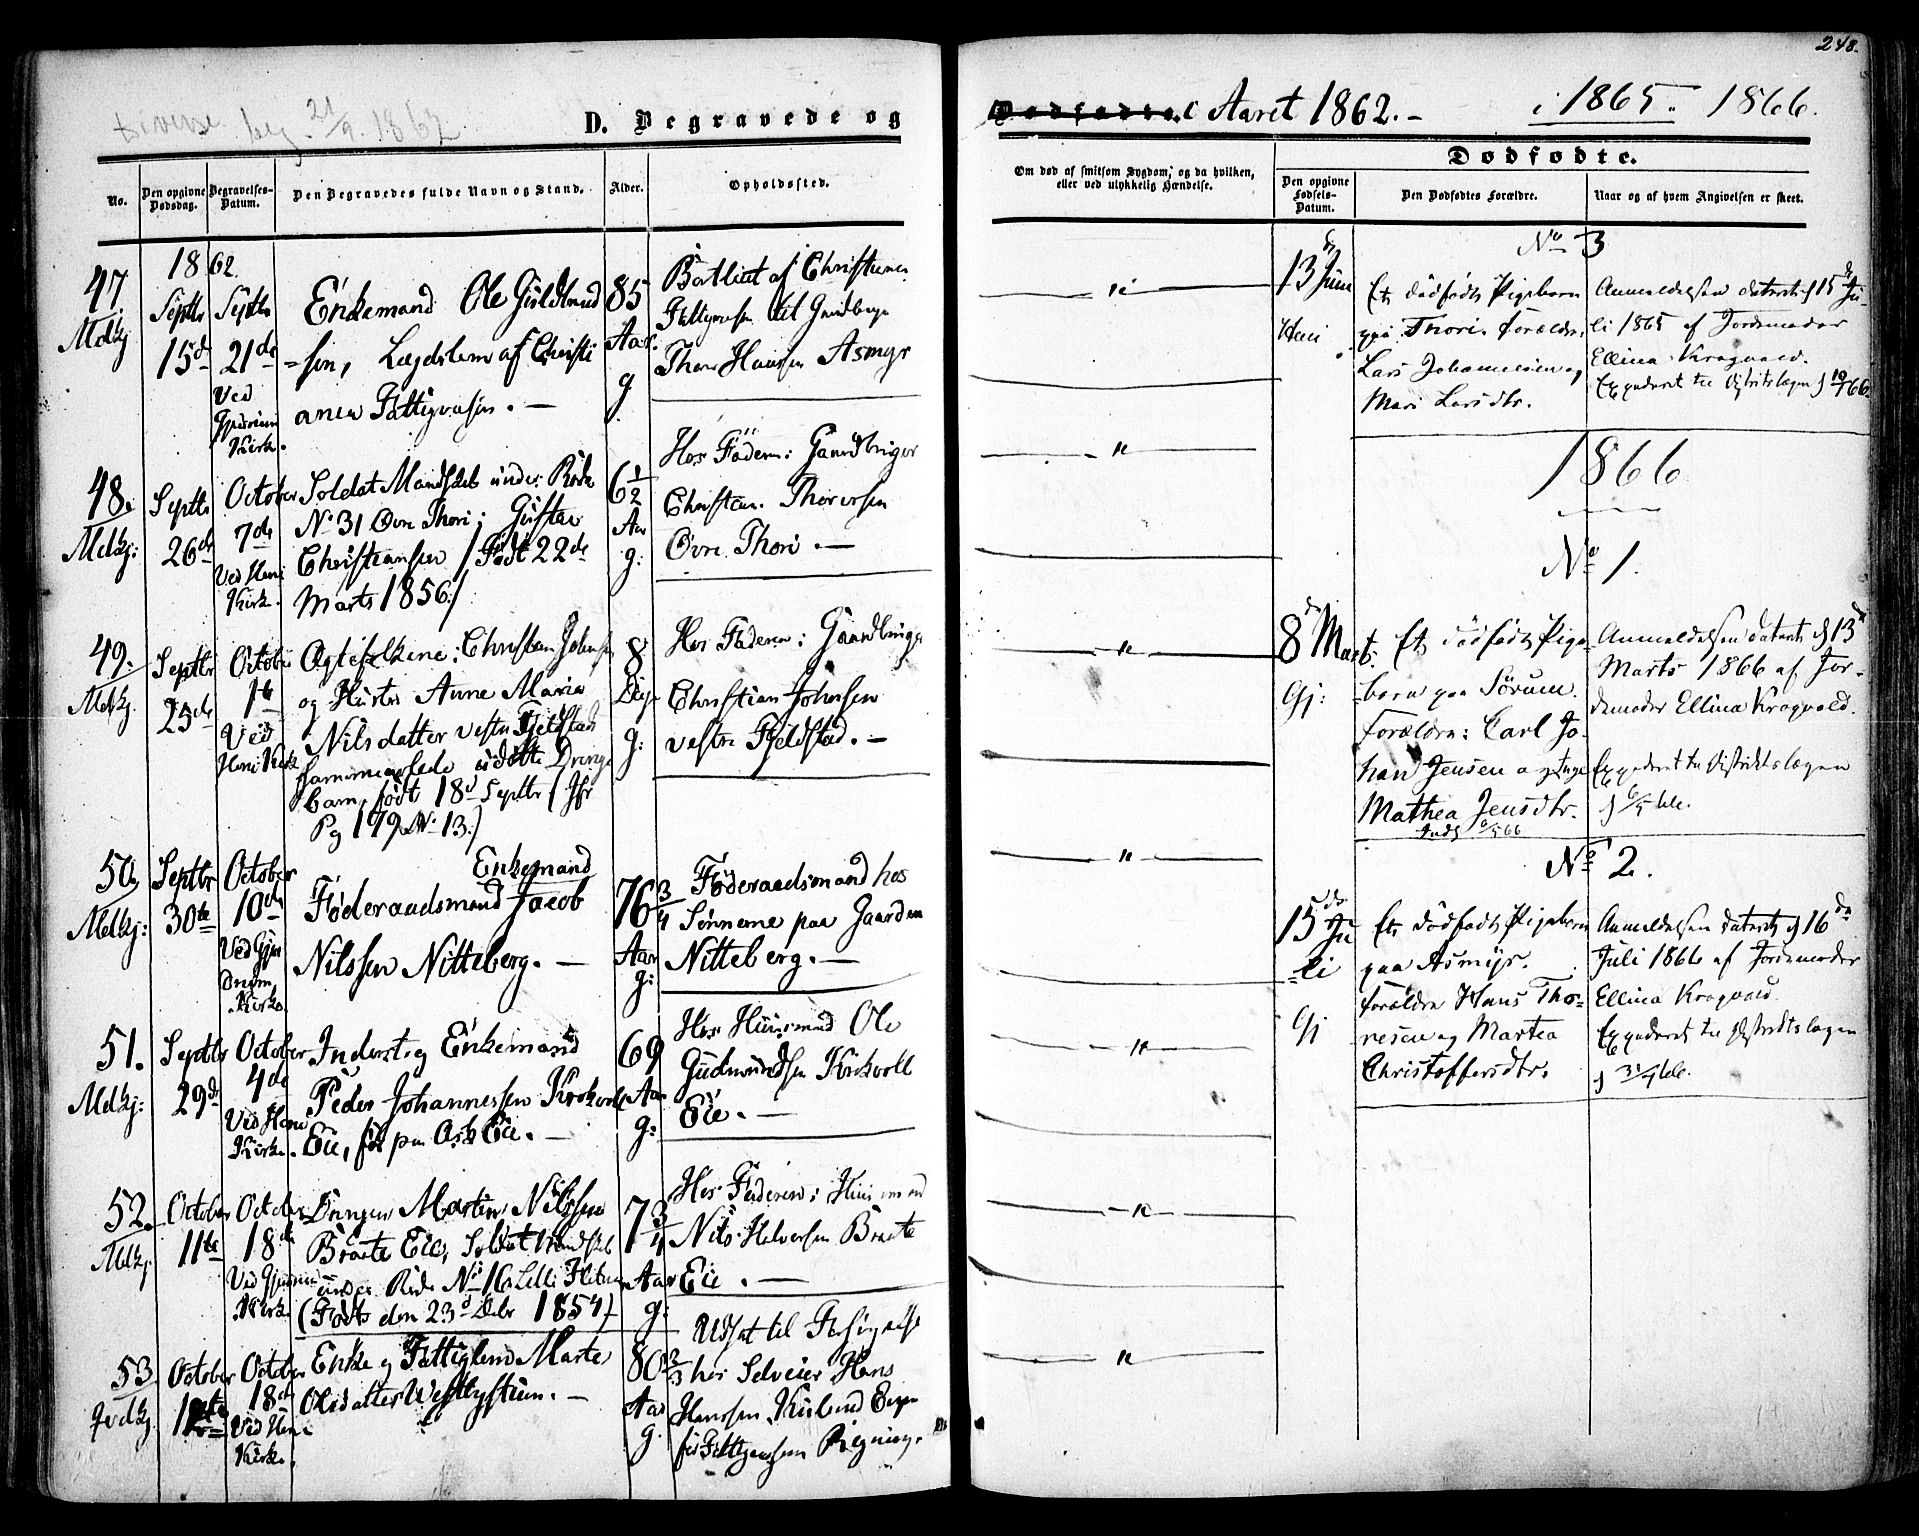 248.
Diverse beg. 21/9 1862
D. Begravede og
Dødfødte i Aaret 1862.-
i 1865. 1866.
No.
Den opgivne Dødsdag.
Begravelses-Datum.
Den Begravedes fulde Navn og Stand.
Alder.
Opholdssted.
Om død af smitsom Sygdom, og da hvilken,
eller ved ulykkelig Hændelse.
Dødfødte.
Den opgivne Fødsels-Datum.
Den Dødfødtes Forældre.
Naar og af hvem Angivelsen er skeet.
1862.
47.
Melkj
Septbr
15d
Septbr
21de
Ved
Kirke.
Enkemand Ole Guldbrand
=sen, Lægdslem af Christi
anea Fattigvæsen. —
85
Aar.
g
af Christiania
Fattigvæsen til Gaardbruger
Thore Hansen Asmyr
48.
Melkj:
Septbr
26de
October
7de
Ved Heni
Kirk.
Soldat Mandskab under Rode
No 31 Øvre Thori; Gustav
Christiansen /Født 22de
Marts 1856/
6 1/2
Aar
g:
Hos Faderen: Gaardbruger
Christian Thorersen
Øvre Thori. —
49.
Melkj.
Septbr
25de
October
1te
Ved
Heni Kirk
Ægtefolkene: Christian Johnsen
og Hustru Anne Maria
Nilsdatter vestre Fjeldstad
hjemmedøbte udøbte Drenge
barn, født 18d Septbr (Jfr
Pg 179 No 13.)
8
Dage
g:
Hos Faderen: Gaardbruger
Christian Johnsen
vestre Fjeldstad. —
50.
Melkj:
Septbr
30te
October
10de
Ved Gjer
drum
Kirke.
Enkemand
Føderaadsmand Jacob
Nilssen Nitteberg. —
76 3/4
Aar
g:
Føderaadsmand hos
Sønnerne paa Gaarden
Nitteberg. —
51.
Melkj:
Septbr
29de
October
4de
Ved Heni
Kirke.
Inderst og Enkemand
Peder Johannessen Krokvoll
Eie, før paa Ask Eie. —
69
Aar
g:
Hos Huusmand Ole
Gudmundsen Krokvoll
Eie. —
52.
Melkj
October
11te
October
18de
Ved Gjerdrum
Kirke.
Drengen Martin Nilssen
Braate Eie, Soldat Mandskab
under Rode No 16 Lille
(Født den 23d Debr 1854)
7 3/4
Aar
g:
Hos Faderen: Huusmand
Nils Halvorsen Braate
Eie. —
53.
October
12te
October
18de
Ved Heni
Kirke.
Enke og Fattiglem Marte
Olsdatter Vestbystuen. —
80 2/3
Aar
g.
Udsat til Forsørgelse
hos Selveier Hans
Hanssen Kulsrud
for Fattigvæsenets Regning.
No 3
13d Juni
Heni
Et dødfødt Pigebarn
paa Thori. Forældre:
Lars Johannesen og
Mari Larsdtr.
Anmeldelsen dateret d 15de Ju
li 1865 af Jordemoder
Ellina Kragvold.
Expederet til Distriktslægen d 10/1 66.
1866
No 1.
8d Marts.
Gj:
Et dødfødt Pige-
=barn paa Sørum.
Forældre: Carl Jo-
han Jensen og Inge
Mathea Jensdtr.
Anmeldelsen dateret d 13d
Marts 1866 af Jor-
demoder Ellina Kragvold.
Expederet til Distriktslægen
d 6/5 66.
No 2.
15de Ju
=li
Gj
Et dødfødt Pigebarn
paa Asmyr.
Forældre Hans Tho-
resen og Martea
Christoffersdtr.
Anmeldelsen dateret d 16de
Juli 1866 af Jordemoder
Ellina Kragvold.
Expederet til Distriktslægen
d 31/7 66.